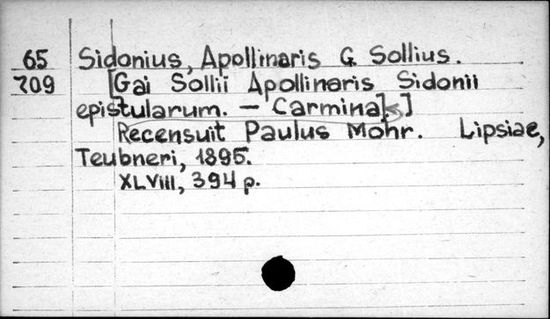 65 Sidonius, Apollinaris G Sollius.
209 [Gai Sollii Apollinaris Sidonii
epistularum. – Carmina].]
Recensuit Paulus Mohr. Lipsiae,
Teubneri, 1895.
XLVIII, 394 p.